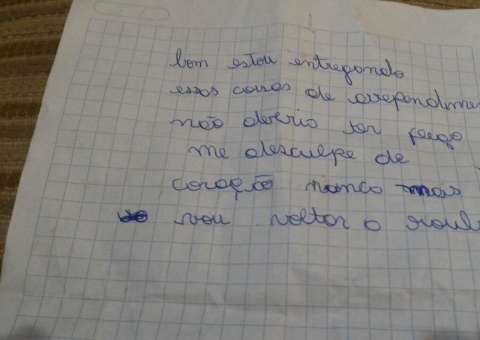 bom estou entregando
essas coisas de arrependimen
não deveria ter pego
me desculpe de
coração nunca mas
vou voltar a roub